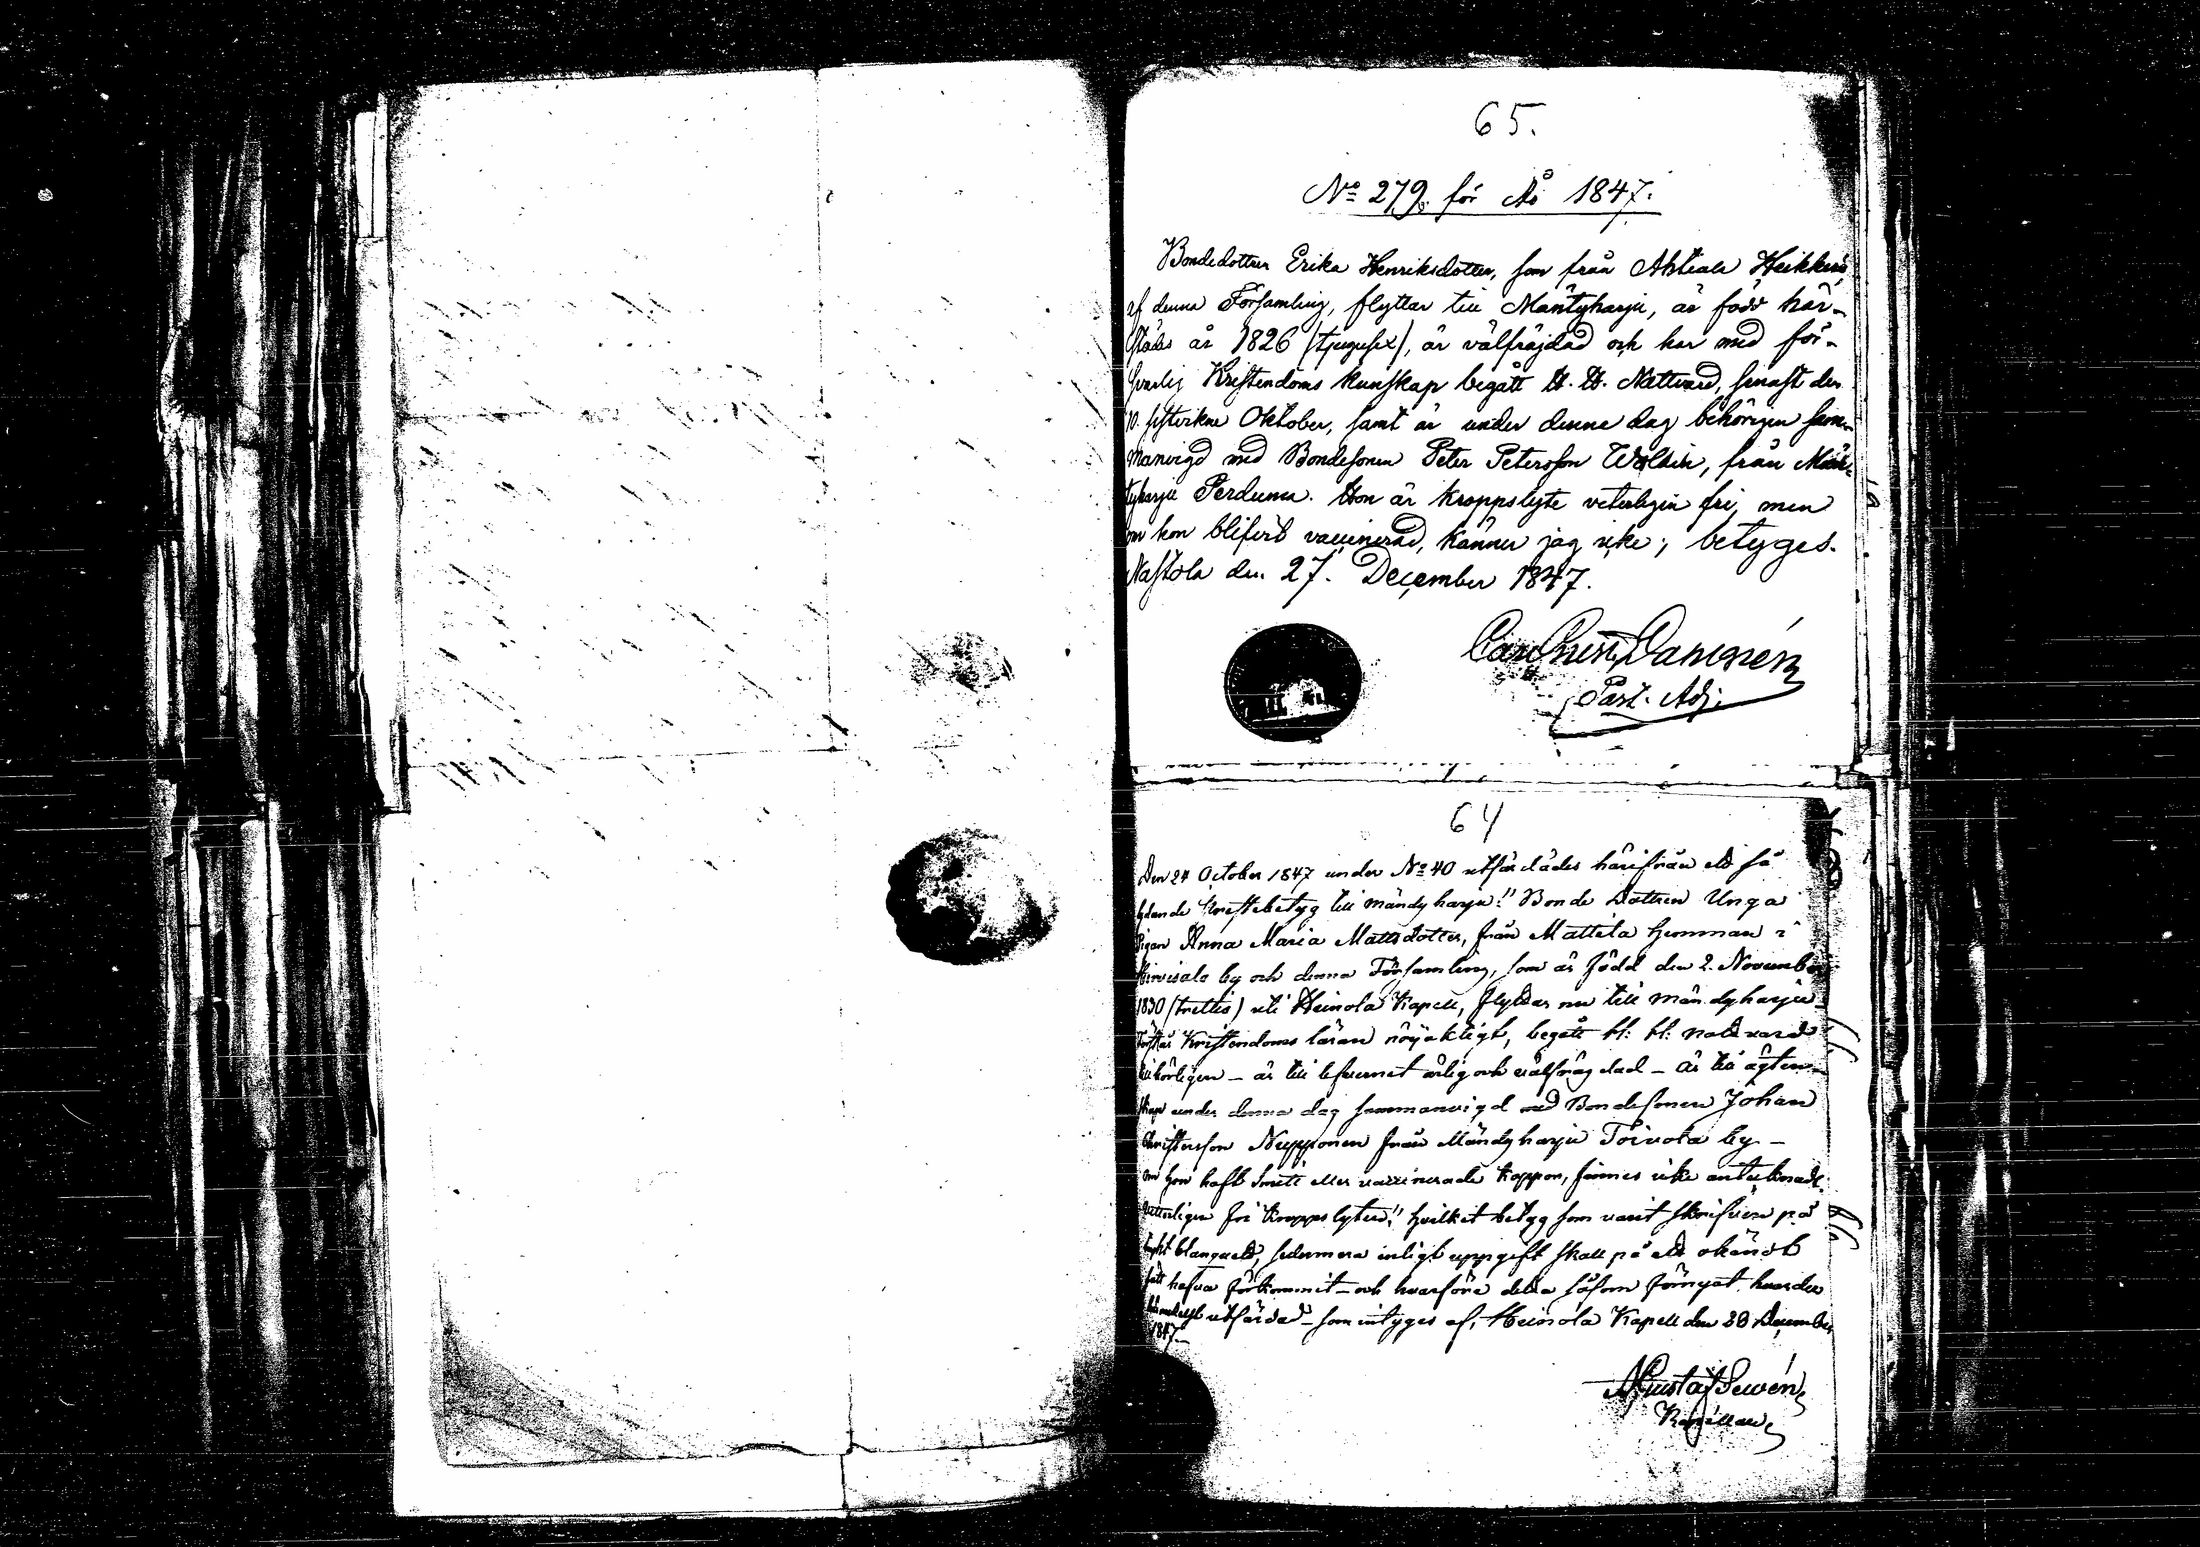 65.
No 279. för År 1847.
Bondedottren Erika Henriksdotter, som från Ahtiala Heikkilä
af denna Församling, flyttar till Mäntyharju, är född här-
städes år 1826 (tjugusex), är välfräjdad och har med för-
svarlig Kristendoms kunskap begått H. H. Nattvard, senast den
10. sistvikne Oktober, samt är under denna dag behörigen sam-
manvigd med Bondesonen Peter Petersson från Män-
tyharju Pertuma. Hon är kroppslyte veterligen fri, men
om hon blifvit vaccinerad, känner jag icke; betyges.
Nastola den 27. December 1847.
Carl Christ. Dammén
Past. Adj.
64
Den 24 October 1847 under No 40 utfärdades härifrån ett så
lydande Prestebetyg till Mändyharju: "Bonde Dottren Unga
Pigan Anna Maria Mattsdotter, från Mattila Hemman i
by och denna Församling, som är född den 2. November
1830 (trettio) uti Heinola Kapell, flyttar nu till Mändyharju
Förstår Kristendoms läran nöjaktigt, begått H: H: Nattvard
behörligen – är till lefvernet ärlig och välfrägdad – är till ägten-
skap under denna dag sammanvigd med Bondesonen Johan
Christersson Nupponen från Mändyharju Toivola by –
om hon haft Smitt eller vaccinerade Koppor, finnes icke antecknadt.
Vetterligen fri Kroppslyten." hvilket betyg som varit skrifven på
tryckt blanquett, sedermera enligt uppgift skall på ett okändt
sätt hafva förkommit – och hvarföre detta såsom förnyat härder
utfärdad – som intyges af, Heinola Kapell den 28 December
1847.–
Gustaf Sewén
Kapellan